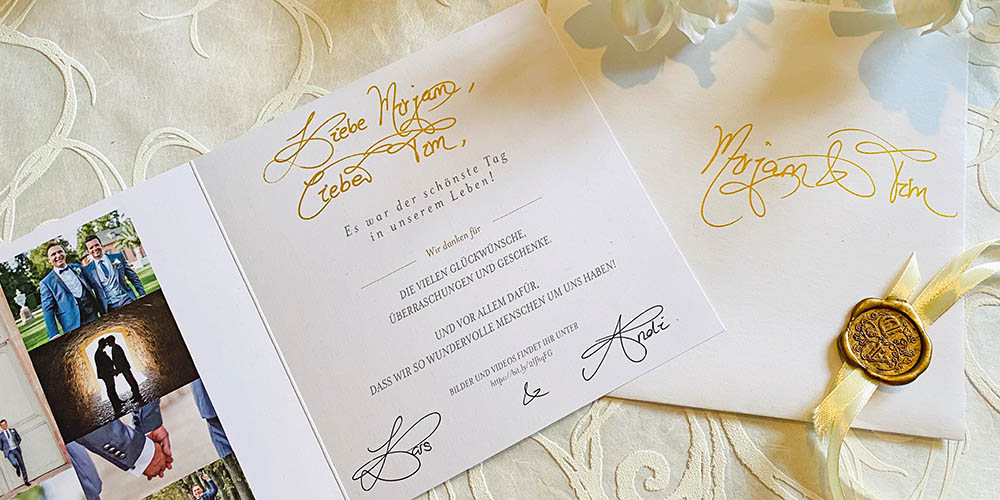 Liebe Mirjam,
Lieber Tim,
Es war der schönste Tag
in unserem Leben!
Wir danken für
DIE VIELEN GLÜCKWÜNSCHE,
ÜBERRASCHUNGEN UND GESCHENKE.
UND VOR ALLEM DAFÜR,
DASS WIR SO WUNDERVOLLE MENSCHEN UM UNS HABEN!
BILDER UND VIDEOS FINDET IHR UNTER
& Andi
Mirjam & Tim